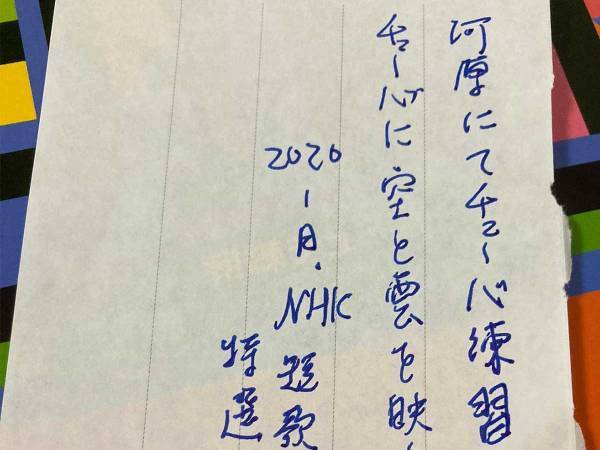 河原にてチューバ練習
チューバに空と雲を映
2020 1月. NHK 短歌
特選